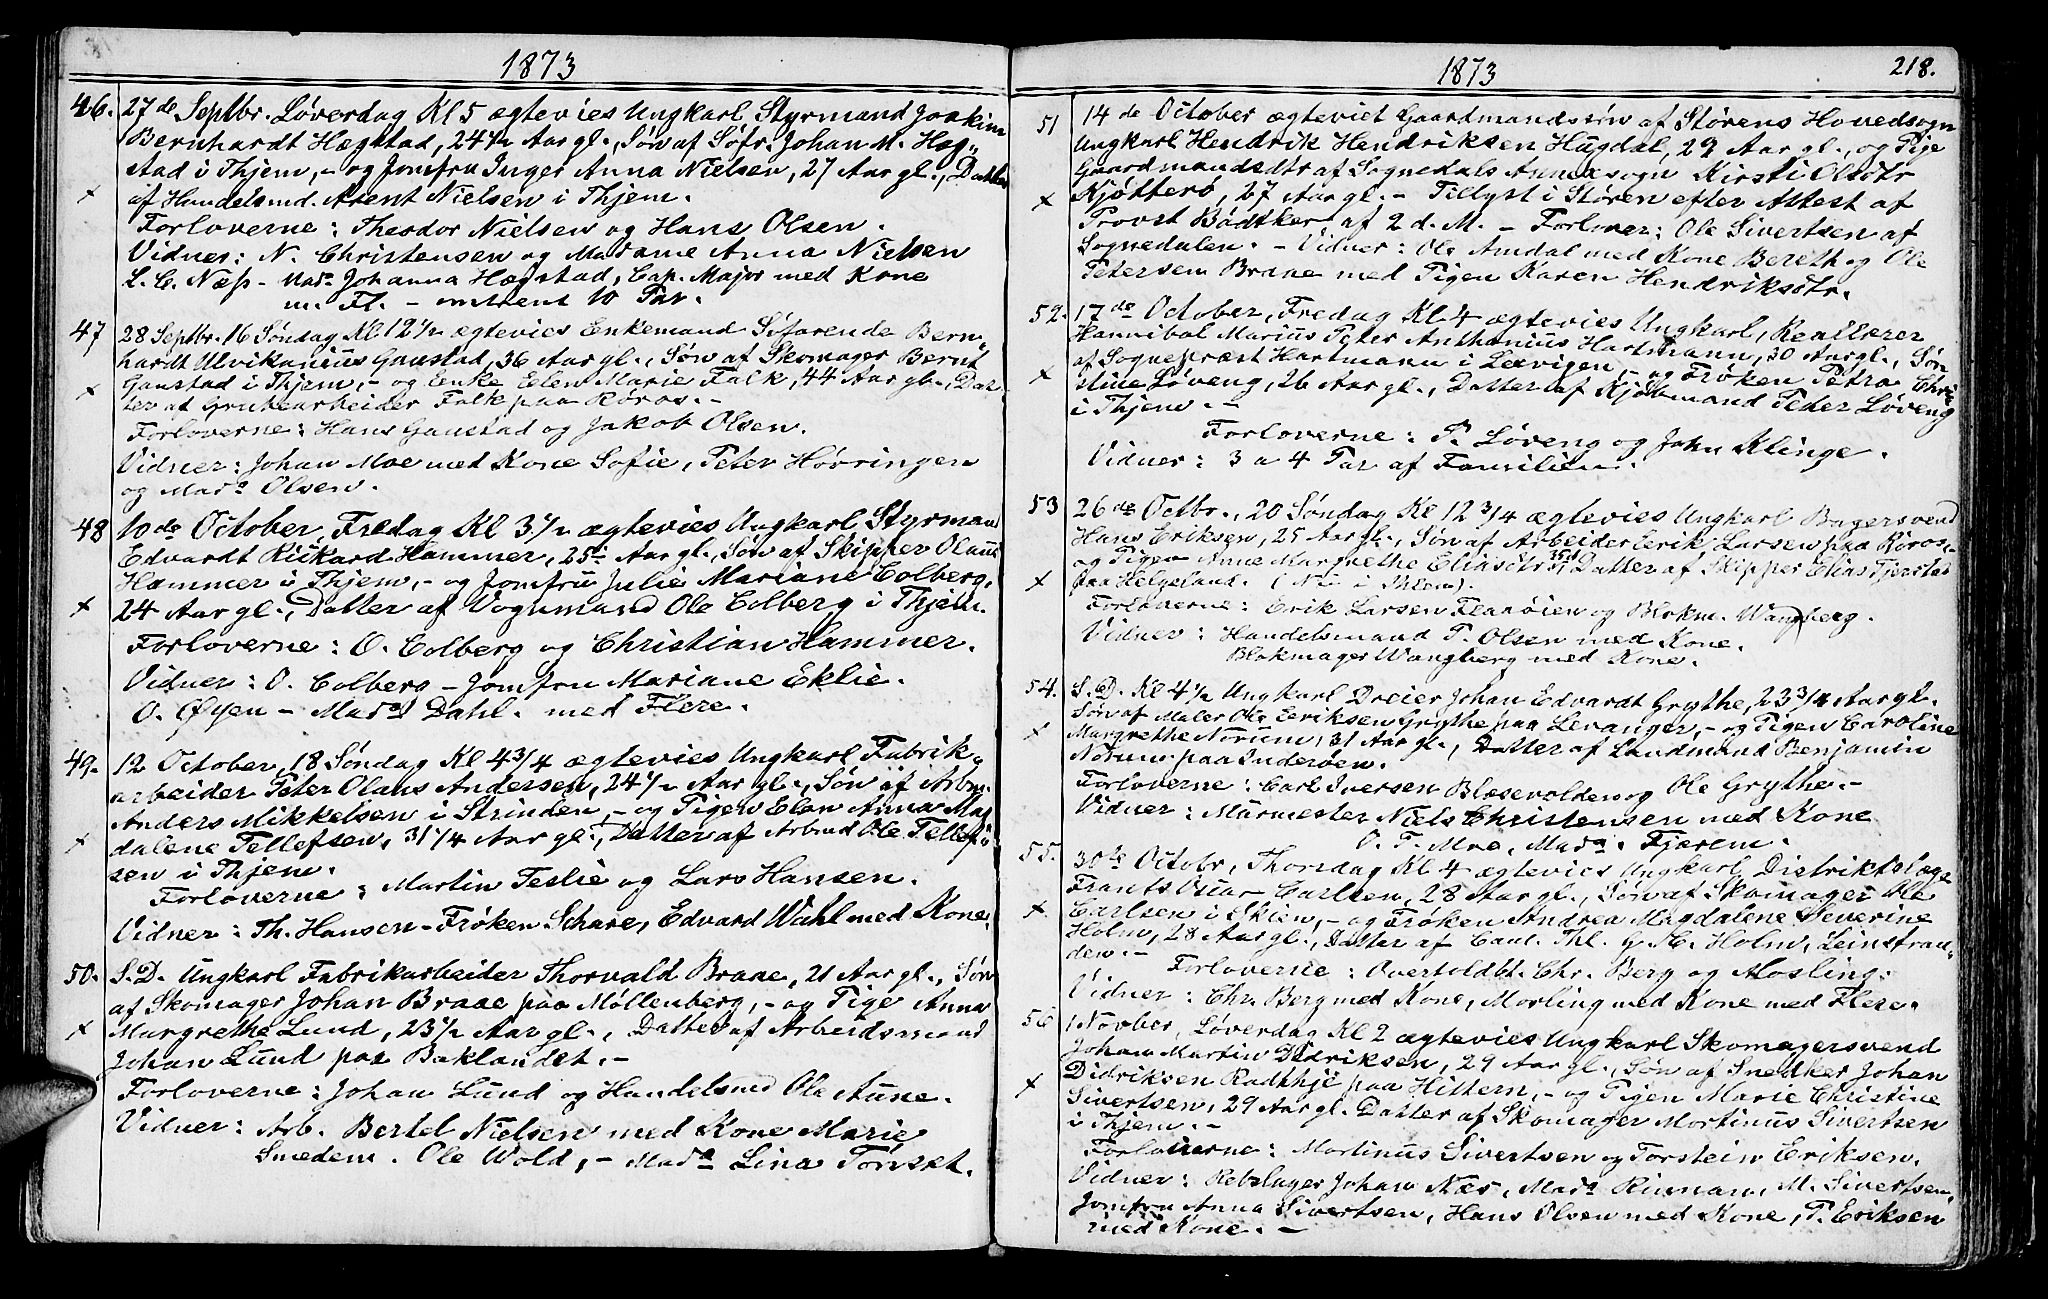 1873
46. 27de Septbr. Løverdag Kl 5 ægtevies Ungkarl Styrmand Joakim
Bernhardt Hægstad, 24½ Aar gl., Søn af Søfr. Johan M. Hæg-
stad i Thjem, - og Jomfru Inger Anna Nielsen, 27 Aar gl., Datter
af Handelsmd. Arent Nielsen i Thjem.
Forloverne: Theodor Nielsen og Hans Olsen.
Vidner: N. Christensen og Madame Anna Nielsen
L. C. Næss - Mada Johanna Hægstad, Cap. Major med Kone
m. Fl. - omtrent 10 Par.
47 28 Septbr. 16 Søndag Kl 12½ ægtevies Enkemand Søfarende Bern-
hardt Ulvikanius Gaustad, 36 Aar gl., Søn af Skomager Bernt
Gaustad i Thjem, - og Enke Elen Marie Falk, 44 Aar gl., Dat-
ter af Grubearbeider Falk paa Røros. -
Forloverne: Hans Gaustad og Jakob Olsen.
Vidner: Johan Moe med Kone Sofie, Peter Hørringen
og Mada Olsen.
48 10de October, Fredag Kl 3½ ægtevies Ungkarl Styrmand
Edvardt Rickard Hammer, 25 Aar gl., Søn af Skipper Olaus
Hammer i Thjem, - og Jomfru Julie Mariane Colberg,
24 Aar gl., Datter af Vognmand Ole Colberg i Thjem.
Forloverne: O. Colberg og Christian Hammer.
Vidner: O. Colberg - Jomfru Mariane Eklie.
O. Øyen - Mada Dahl. med Flere.
49. 12 October, 18 Søndag Kl 4¾ ægtevies Ungkarl Fabrik-
arbeider Peter Olaus Andersen, 24½ Aar gl., Søn af Arbm.
Anders Mikkelsen i Strinden, - og Pigen Elen Anna Mag-
dalene Tellefsen, 31¼ Aar gl., Datter af Arbmd Ole Tellef-
sen i Thjem.
Forloverne: Martin Teslie og Lars Hansen.
Vidner: Th. Hansen - Frøken Schare, Edvard Wahl med Kone.
50. S. D. Ungkarl Fabrikarbeider Thorvald Braae, 21 Aar gl., Søn
af Skomager Johan Braae paa Møllenberg, - og Pige Anna
Margrethe Lund, 23½ Aar gl., Datter af Arbeidsmand
Johan Lund paa Baklandet. -
Forloverne: Johan Lund og Handelsmd Ole Aune.
Vidner: Arb. Bertel Nielsen med Kone Marie
Smedem. Ole Wold, - Mada Lina Tønset.
1873 218.
51 14de October ægteviet Gaardmandssøn af Størens Hovedsogn
Ungkarl Hendrik Hendriksen Hugdal, 29 Aar gl., og Pige
Gaardmandsdtr af Sognedals Annexsogn Kirsti Olsdtr
Kjøtterø, 27 Aar gl. - Tillyst i Støren efter Attest af
Provst Bødtker af 2 d. M. - Forlover: Ole Sivertsen af
Sognedalen. - Vidner: Ole Amdal med Kone Bereth og Ole
Petersen Braae med Pigen Karen Hendriksdtr.
52. 17de October, Fredag Kl 4 ægtevies Ungkarl, Reallærer
Hannibal Marius Peter Anthonius Hartmann, 30 Aar gl., Søn
af Sognepræst Hartmann i Leevigen, - og Frøken Petra Chri-
stine Løveng, 26 Aar gl., Datter af Kjøbmand Peter Løveng
i Thjem. -
Forloverne: P. Løveng og John Klinge.
Vidner: 3 a 4 Par af Familien.
53 26de Octbr., 20 Søndag Kl 12¾ ægtevies Ungkarl Bagersvend
Hans Eriksen, 25 Aar gl., Søn af Arbeider Erik Larsen paa Røros, -
og Pigen Anne Margrethe Eliasdtr, Datter af Skipper Elias
paa Helgeland. (Nu i Thjem).
Forloverne: Erik Larsen Flanøien og Blokm. Wangberg.
Vidner: Handelsmand P. Olsen med Kone.
Blokmager Wangberg med Kone.
54. S. D. Kl 4½ Ungkarl Dreier Johan Edvardt Grythe, 22¾ Aar gl.
Søn af Maler Ole Eeriksen Grythe paa Levanger, - og Pigen Caroline
Margrethe Norum, 31 Aar gl., Datter af Landmand Benjamin
Norum paa Inderøen.
Forloverne: Carl Iversen Blæsevolden og Ole Grythe. -
Vidner: Murmester Niels Christensen med Kone
O. T. Moe, Mada. Fjærem.
55. 30te Octobr, Thorsdag Kl 4 ægtevies Ungkarl, Distriktslæge
Frants Oscar Carlsen, 28 Aar gl., Søn af Skomager Ole
Carlsen i Skien, - og Frøken Andrea Magdalene Severine
Holm, 28 Aar gl., Datter af Cand. Thl. G. H. Holm, Leinstran-
den. - Forloverne: Overtoldbt. Chr. Berg og Mosling.
Vidner: Chr. Berg med Kone, Morling med Kone med Flere.
56 1 Novber, Løverdag Kl 2 ægtevies Ungkarl Skomagersvend
Johan Martin Didriksen, 29 Aar gl., Søn af Snedker Johan
Didriksen Radthje paa Hittern, - og Pigen Marie Christine
Sivertsen, 29 Aar gl. Datter af Skomager Martinus Sivertsen
i Thjem. -
Forloverne: Martinus Sivertsen og Torstein Eriksen.
Vidner: Rebslager Johan Næs, Mada Rinnan, M. Sivertsen,
Jomfru Anna Sivertsen, Hans Olsen med Kone, T. Eriksen
med Kone. -